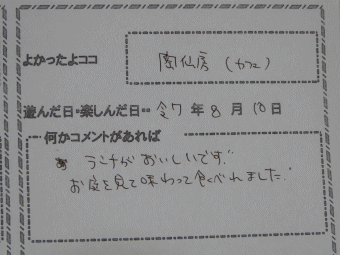 よかったよココ
蘭仙房 (カフェ)
遊んだ日・楽しんだ日… 令7年8月10日
何かコメントがあれば
ランチがおいしいです。
お庭を見て味わって食べれました。